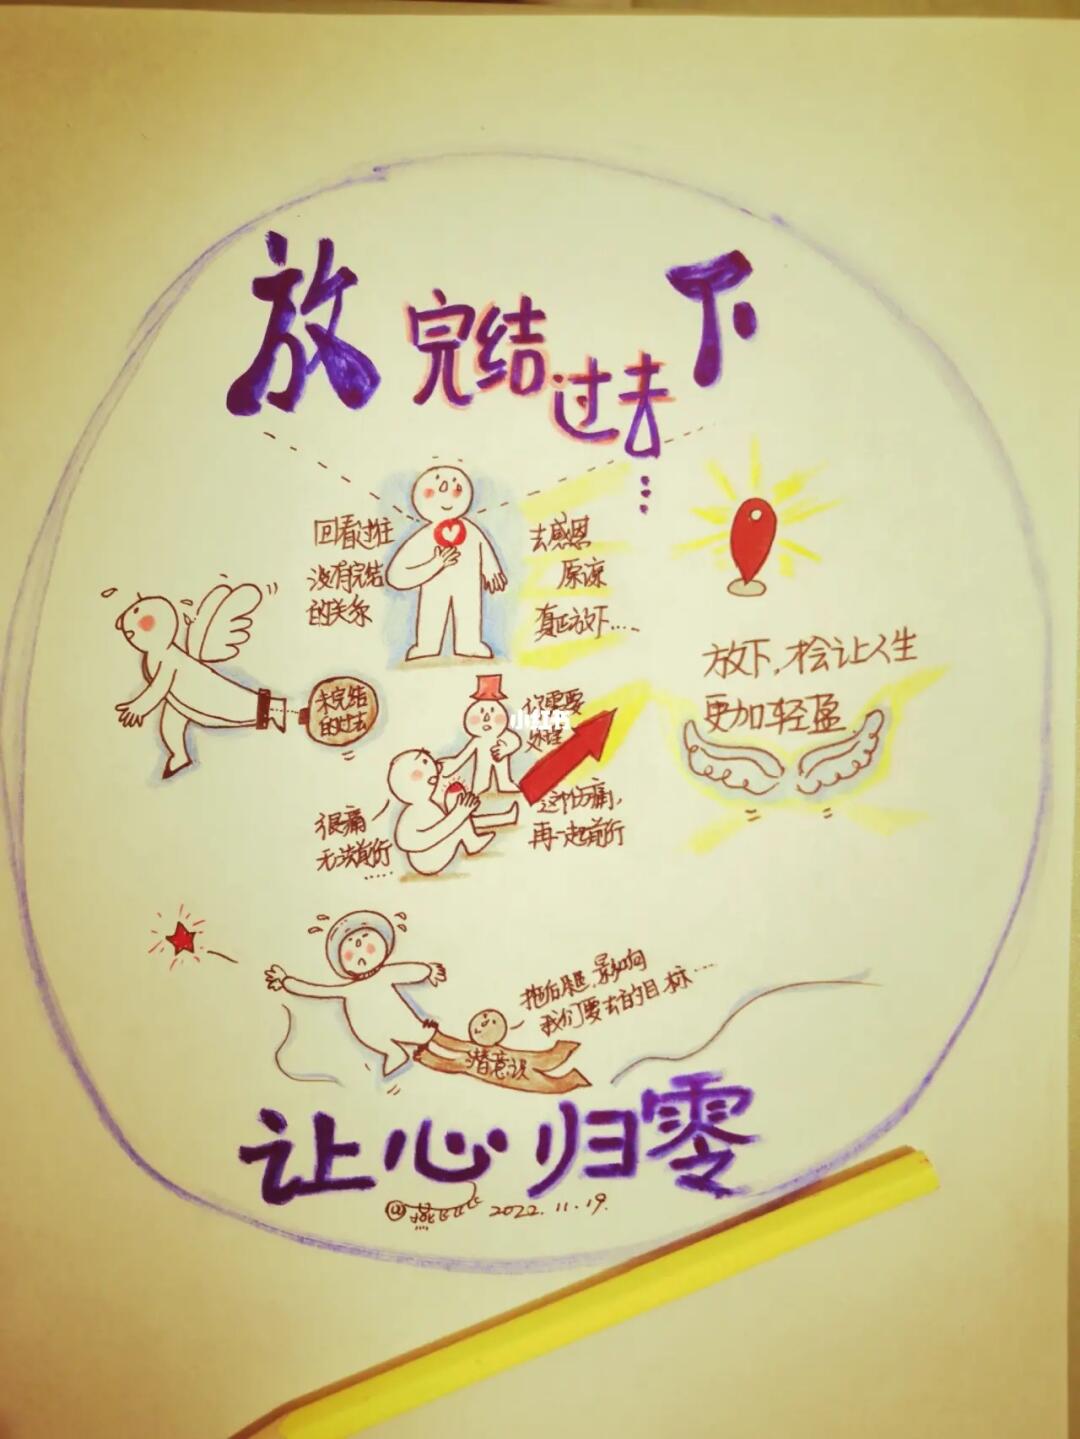 放下
完结过去...
回看过往
没有完结
的关系
去感恩
原谅
真正放下....
未完结
的过去
你需要
处理
这个伤痛，
再一起前行
很痛
无法前行
......
放下，才会让人生
更加轻盈
小红书
拖后腿，影响
我们要去的目标...
潜意识
让心归零
@燕 2022.11.19.